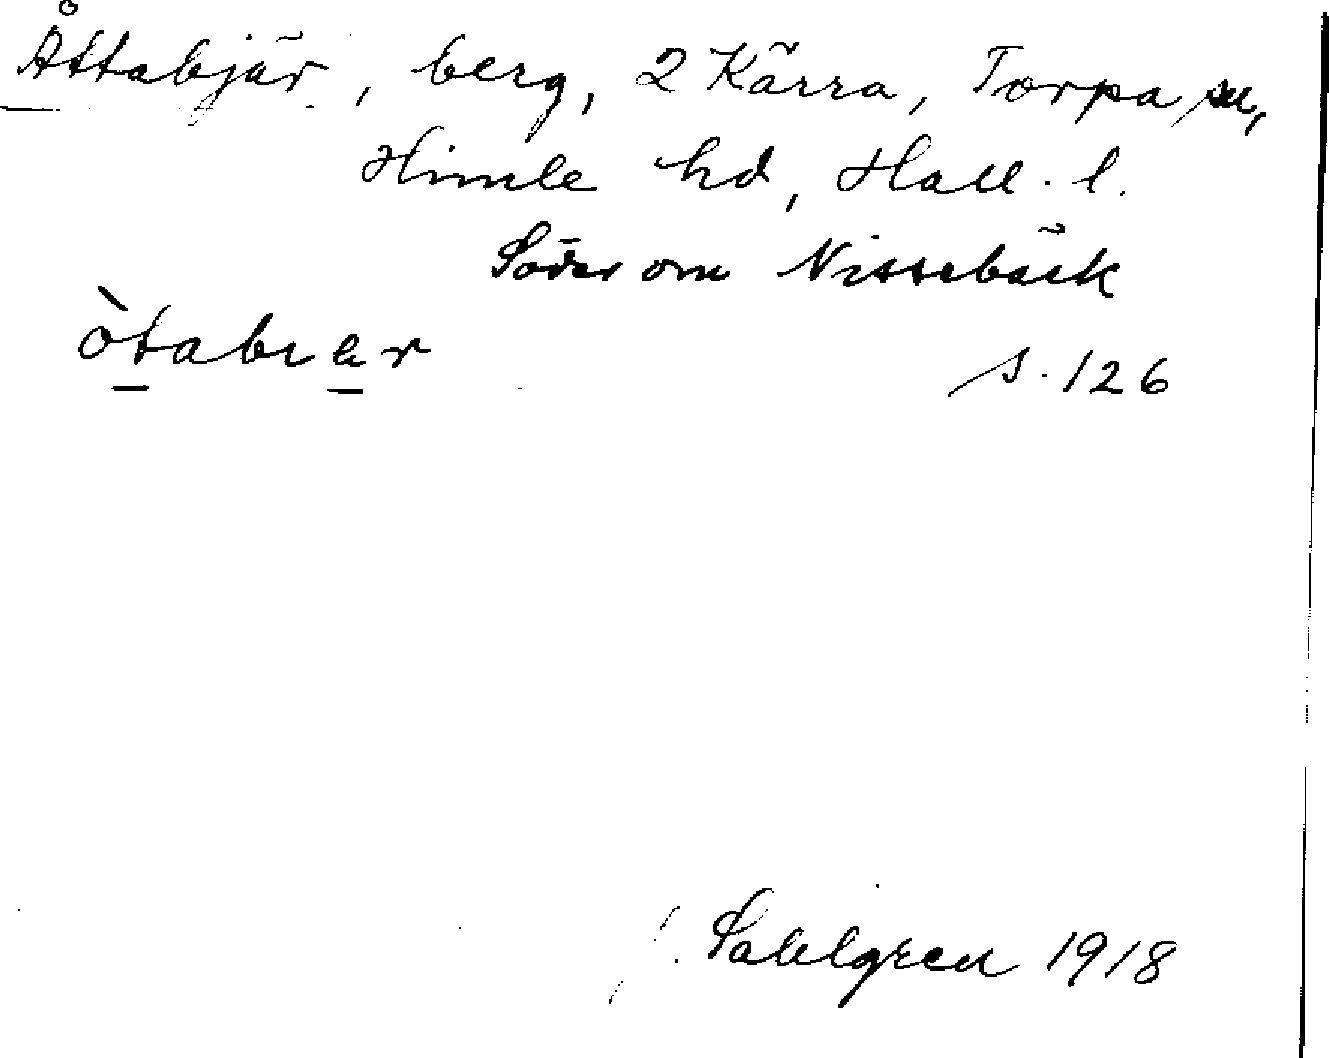 Åttabjär, berg, 2 Kärra, Torpa sn,
Himle hd, Hall. l.
Söder om Nissebäck
òtabıer
s. 126
J. Sahlgren 1918